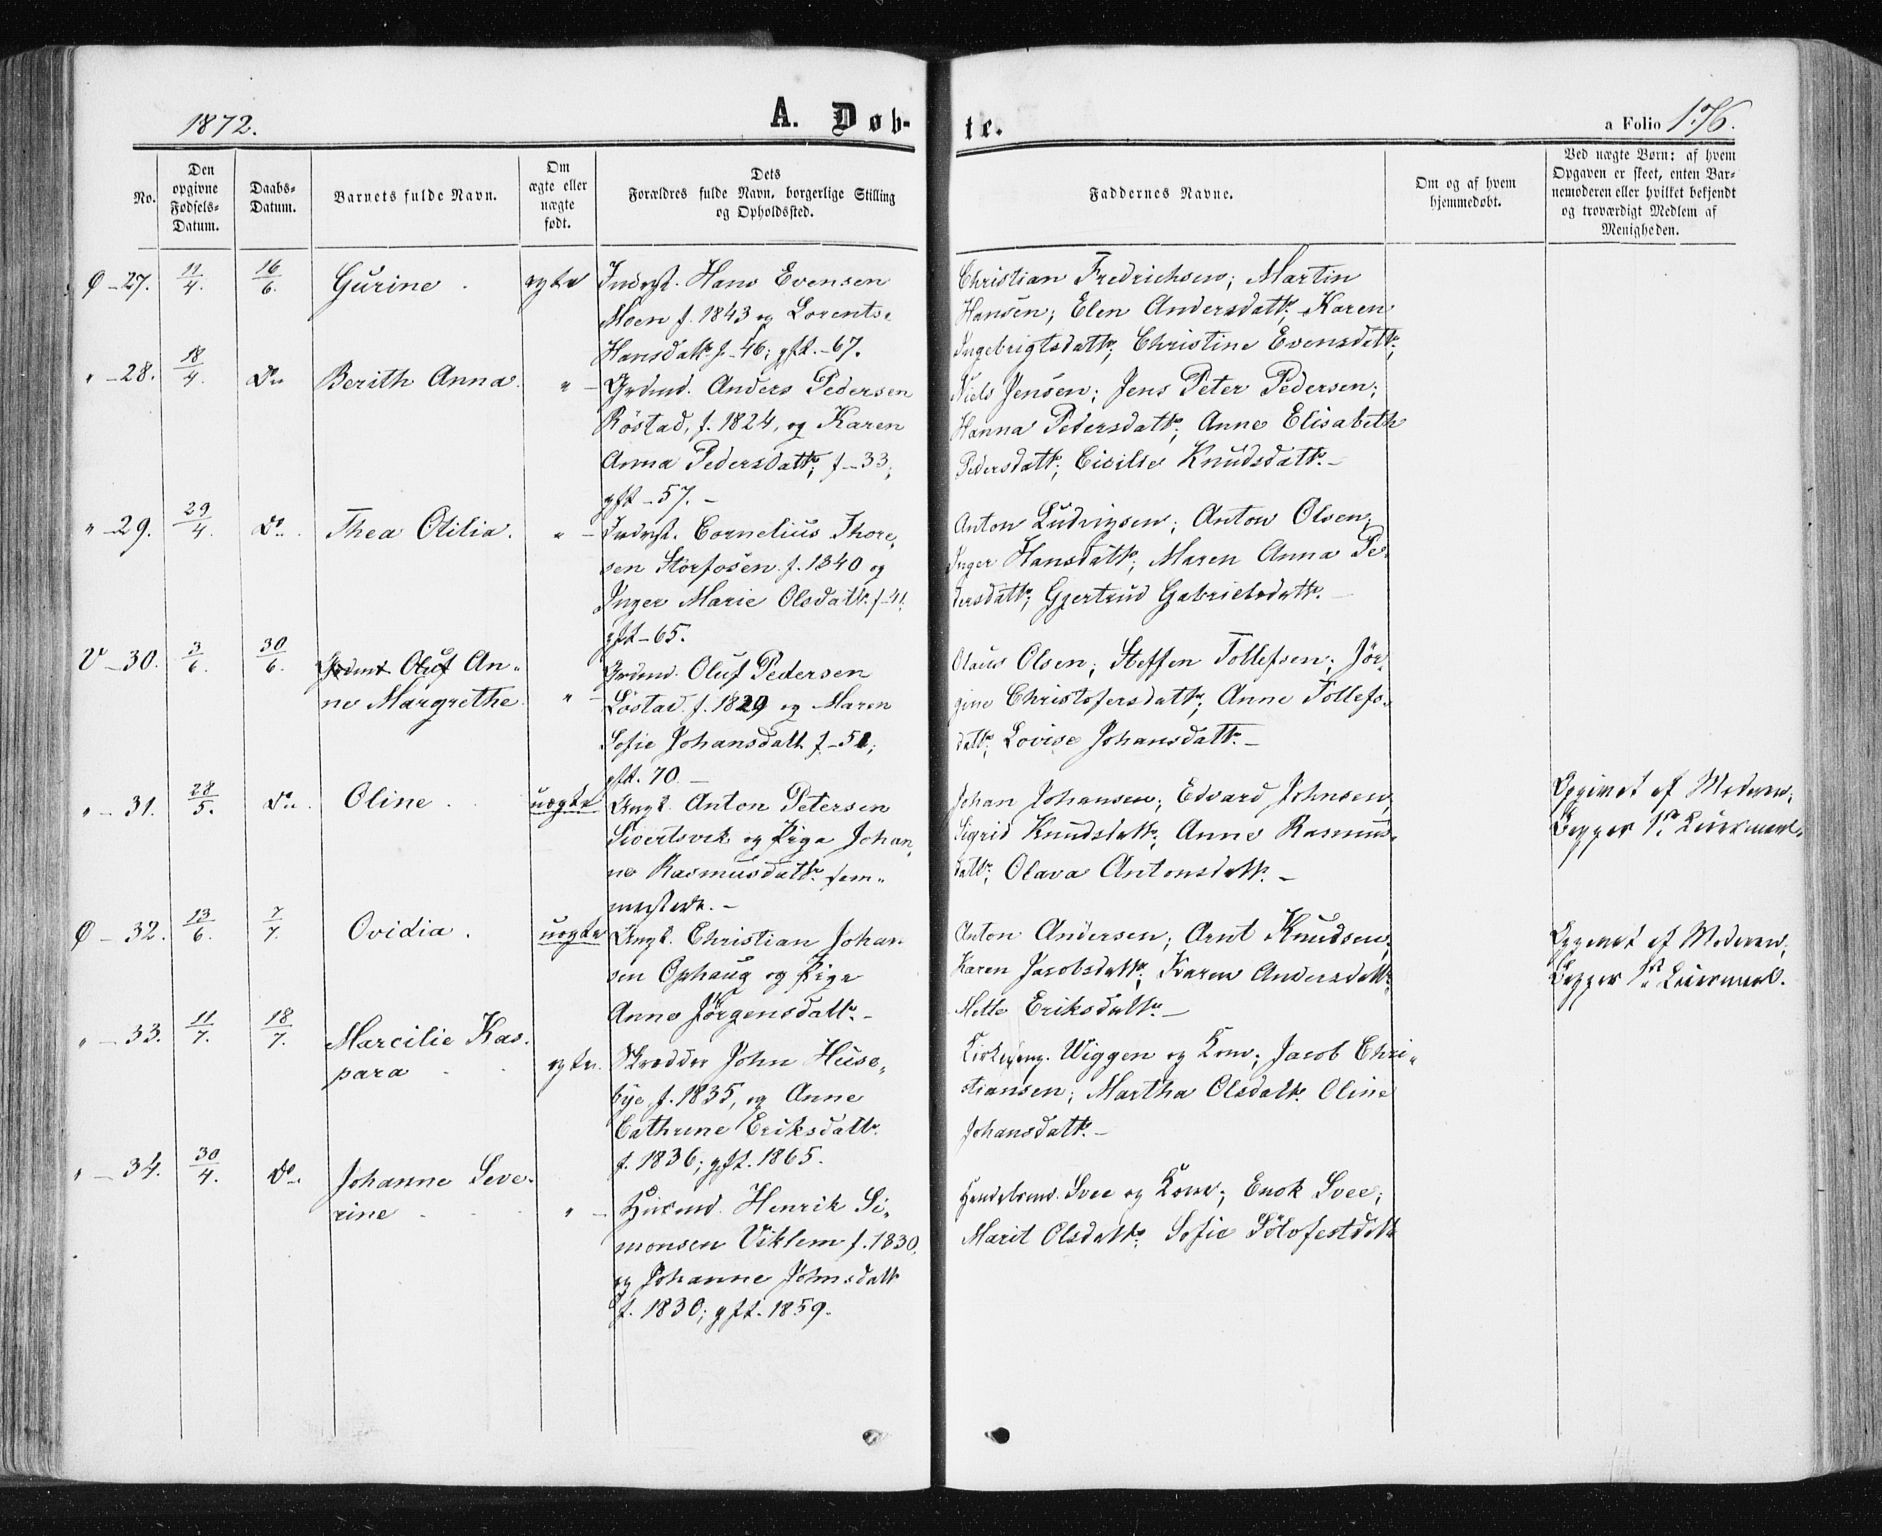 1872.
A. Døb-
te.
a Folio 176.
No.
Den
opgivne
Fødsels-
Datum.
Daabs-
Datum.
Barnets fulde Navn.
Om
ægte eller
uægte
født.
Dets
Forældres fulde Navn, borgerlige Stilling
og Opholdssted.
Faddernes Navne.
Om og af hvem
hjemmedøbt.
Ved uægte Børn: af hvem
Opgaven er skeet, enten Bar-
nemoderen eller hvilket bekjendt
og troværdigt Medlem af
Menigheden.
Ø - 27. 11/4. 16/6. Gurine. ægte
Inderst. Hans Evensen
Moen f. 1843 og Lorents-
Hansdattr f. -46; gft. -67.
Christian Fredrichsen; Martin
Hansen; Elen Andersdattr; Karen
Ingebrigtsdattr; Christine Evensdattr;
" - 28. 18/4. Do. Berith Anna. " -
Grdmd. Anders Pedersen
Röstad, f. 1824, og Karen
Anna Pedersdattr; f -33;
gft -57. -
Niels Jensen; Jens Peter Pedersen;
Hanna Petersdattr; Anne Elisabeth
Pedersdattr; Cicilie Knudsdattr. -
" - 29. 29/4. Do. Thea Otilia. " -
Inderst. Cornelius Thore-
sen Storfosen f. 1840 og
Inger Marie Olsdattr f -41.
gft -65.
Anton Ludvigsen; Anton Olsen;
Inger Hansdattr; Maren Anna Pe-
dersdattr; Gjertrud Gabrielsdattr. -
V - 30. 3/6. 30/6. Grdmd Oluf An-
ne Margrethe. " -
Grdmd. Oluf Pedersen
Löstad f. 1829 og Maren
Sofie Johansdatt f -51;
gft. 70. -
Olaus Olsen; Steffen Tollefsen; Jör-
gine Christofersdattr; Anne Tollefs-
dattr; Lovise Johansdattr. -
" - 31. 28/5. Do. Oline. uægte
Ungk. Anton Petersen
Sivertsvik og Pige Johan-
ne Rasmusdattr. sam-
mesteds. -
Johan Johansen; Edvard Johnsen
Sigrid Knudsdattr; Anne Rasmus-
dattr; Olava Antonsdattr. -
Opgivet af Moderen;
Begges 1ste Leiermaal.
Ø - 32. 13/6. 7/7. Ovidia. uægte
Ungk. Christian Johan-
sen Ophaug og Pige
Anne Jørgensdattr. -
Anton Andersen; Arnt Knudsen;
Karen Jacobsdattr; Karen Andersdattr;
Mette Eriksdattr. -
Opgivet af Moderen;
Begges 1ste Leiermaal.
" - 33. 11/7. 18/7. Marcilie Kas-
para. ægte.
Skrædder John Huse-
bye f. 1835, og Anne
Cathrine Eriksdattr.
f. 1836; gft. 1865.
Kirkesang. Wiggen og Kone; Jacob Chri-
stiansen; Martha Olsdattr. Oline
Johansdattr. -
" - 34. 30/4. Do. Johanne Seve-
rine. " -
Husmd. Henrik Si-
monsen Viklem f. 1830,
og Johanne Johnsdatt
f. 1830; gft. 1859.
Handelsmd. Svee og Kone; Enok Svee;
Marit Olsdattr; Sofie Tölofestdattr